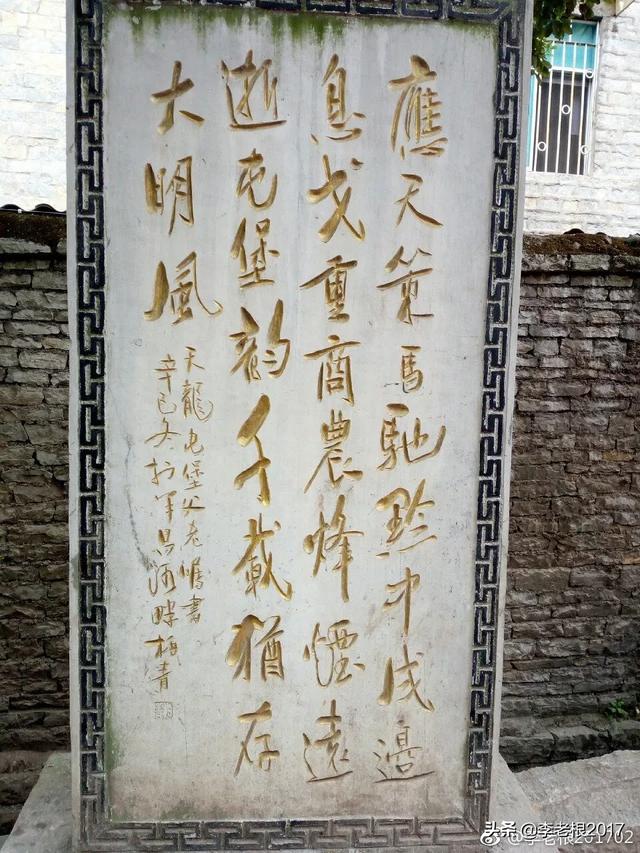 應天策馬馳黔中戍邊
息戈重商農烽煙遠
逝屯堡韵千載猶存
大明風
天龍屯堡父老嘱書
辛巳冬於羊昌河畔柏青
头条 @李老根2017